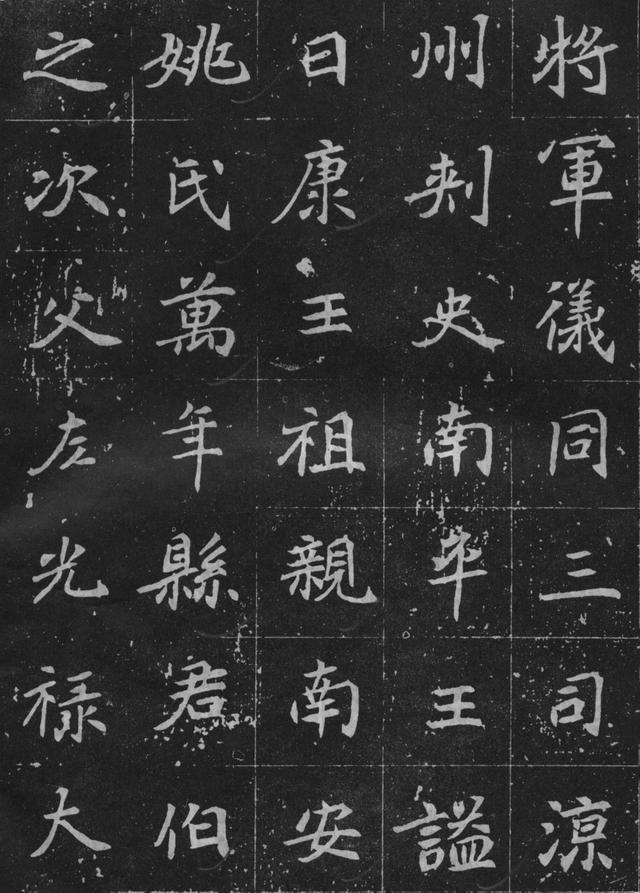 將軍儀同三司涼
州刺史南平王謚
日康王祖親南安
姚氏萬年縣君伯
之次父左光祿大